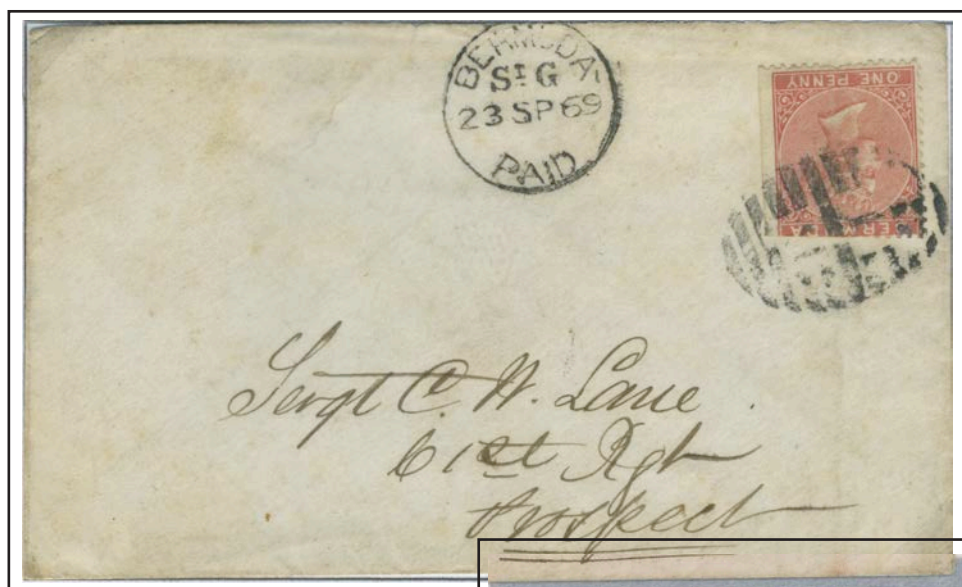 BERMUDA
St G
23 SP 69
PAID
ONE PENNY
BERMUDA
Sergt C. W. Lane
61st Rgt
Prospect